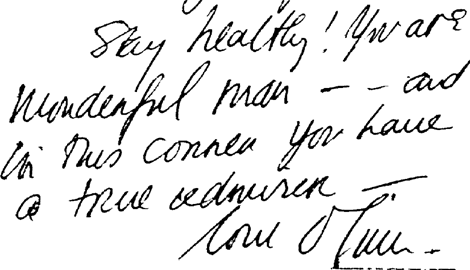 Stay healthy! You are
Wonderful man -- and
in this corner you have
a true admirer —